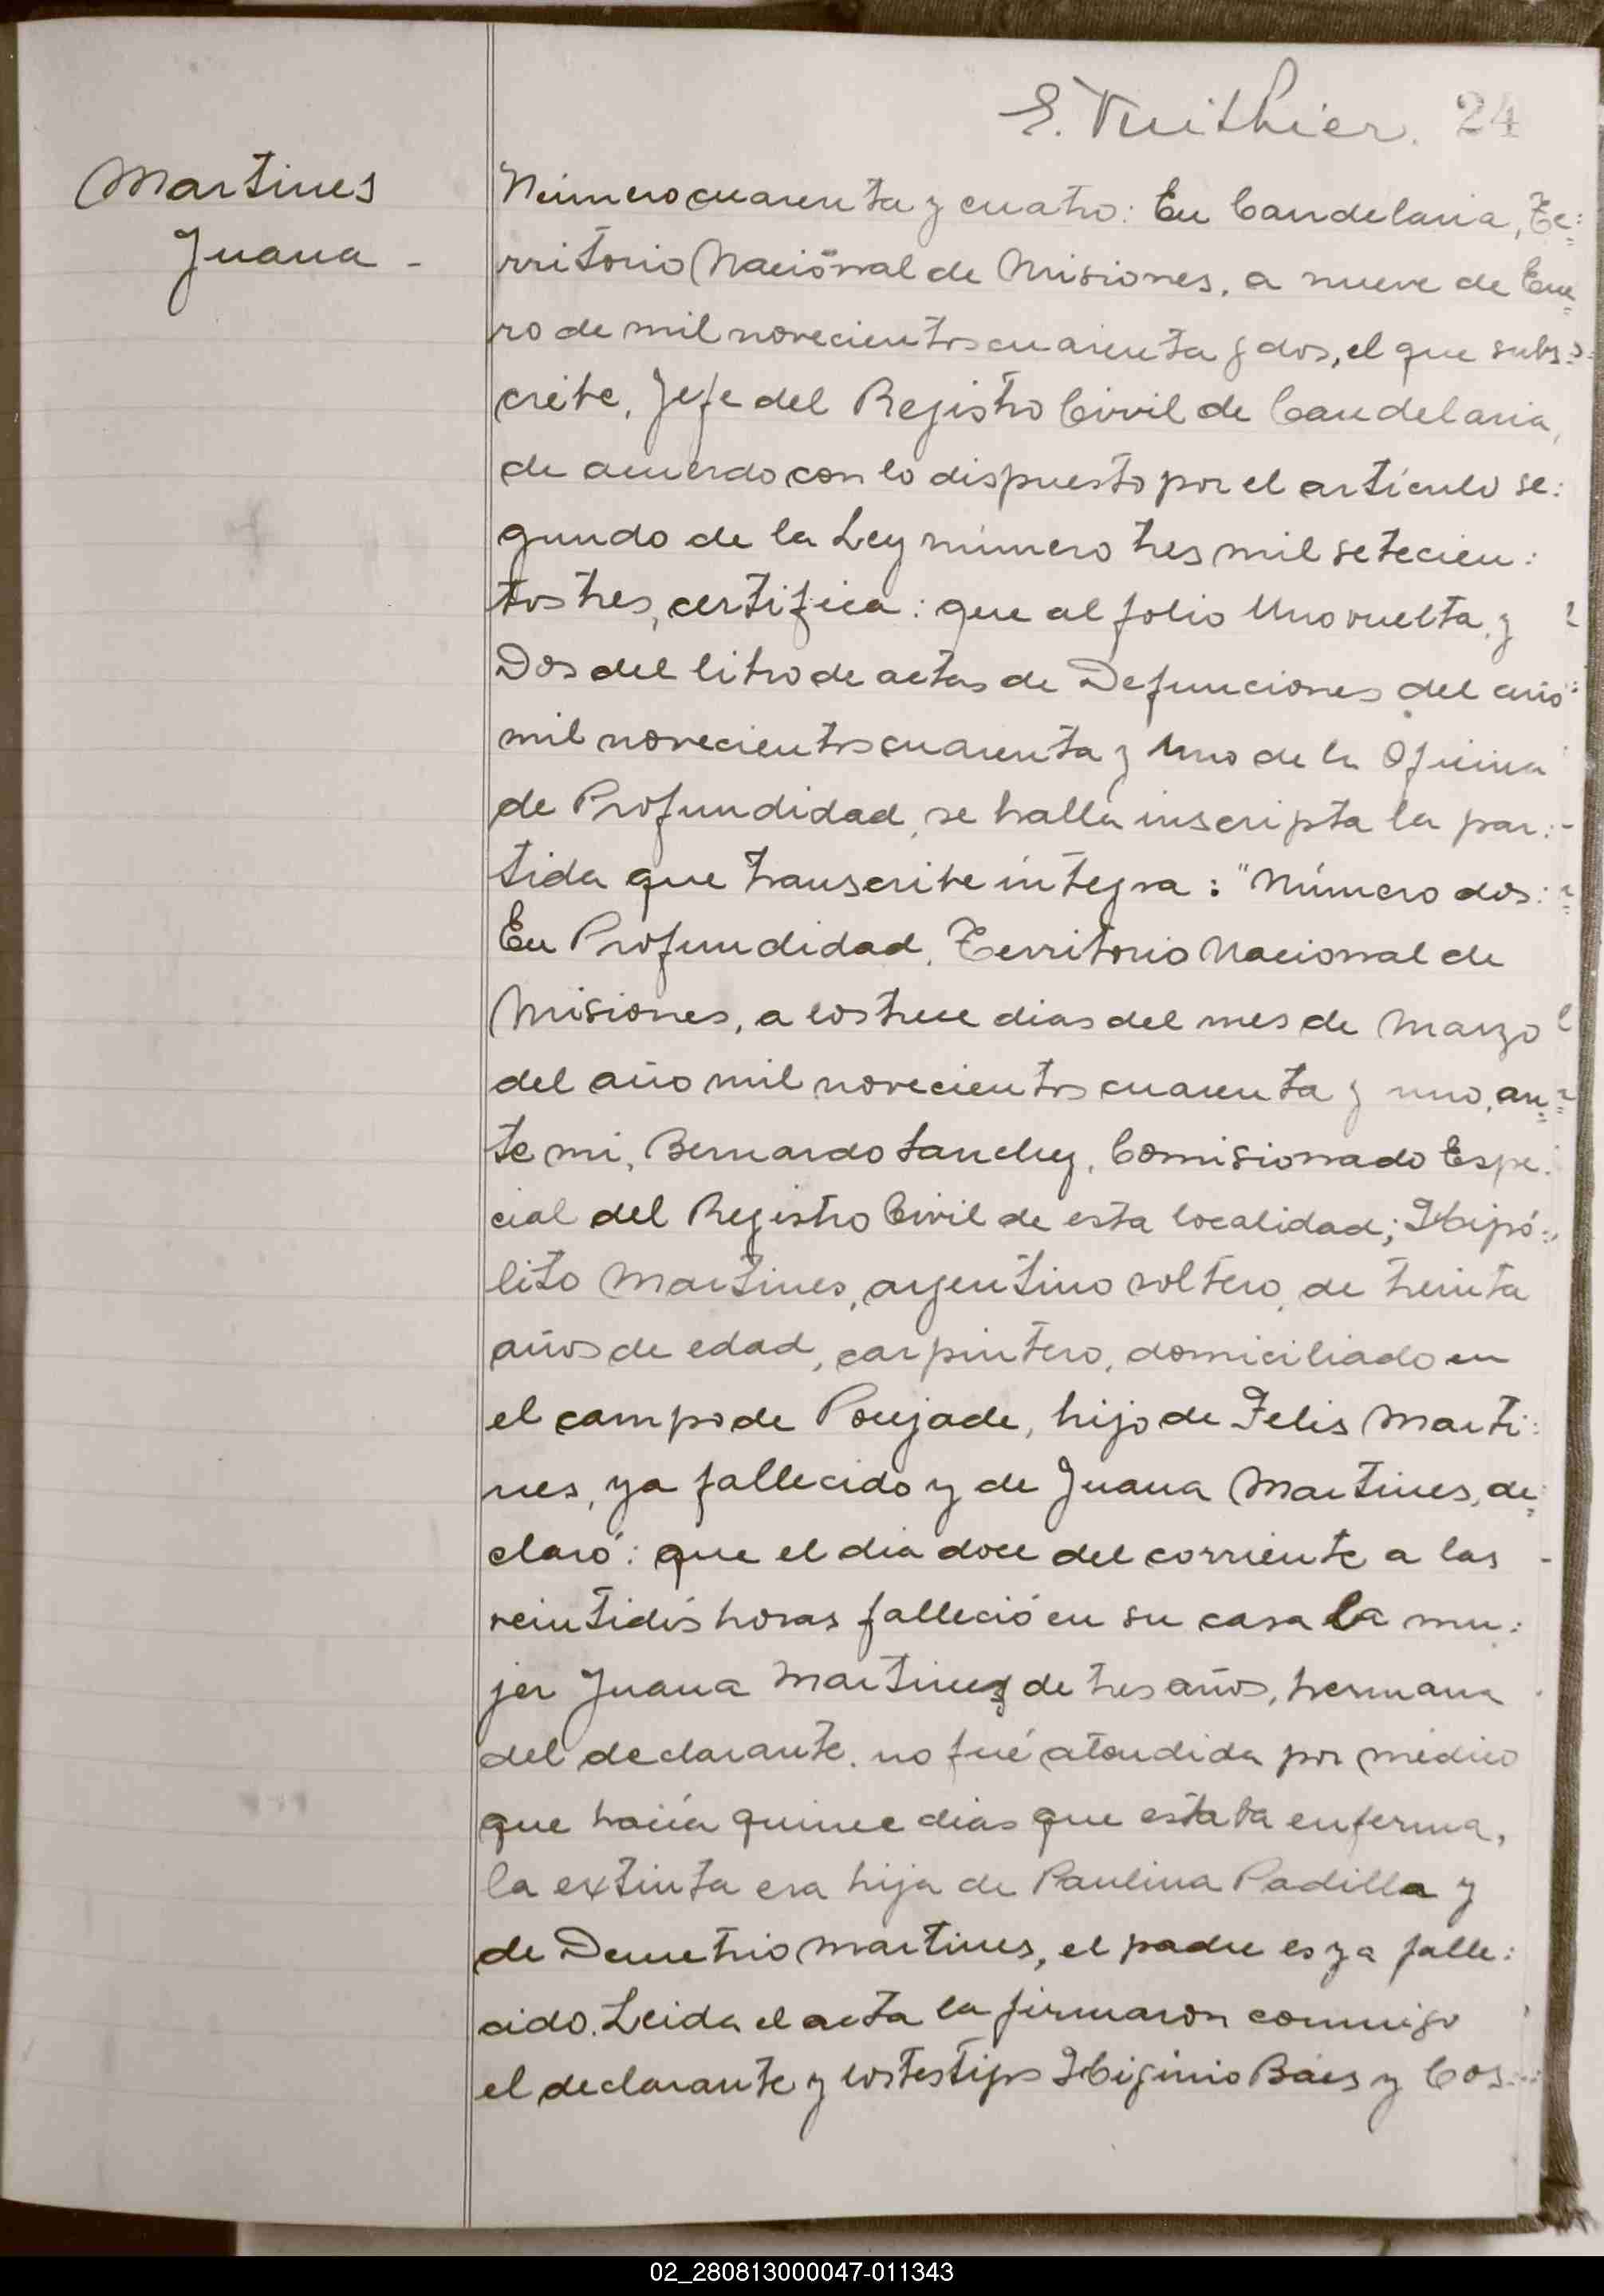 E. Vuithier. 24
Martines
Juana -
Número cuarenta y cuatro: En Candelaria, Te=
rritorio Nacional de Misiones, a nueve de Ene=
ro de mil novecientos cuarenta y dos, el que subs=
cribe, Jefe del Registro Civil de Candelaria,
de acuerdo con lo dispuesto por el artículo se=
gundo de la Ley número tres mil setecien=
tos tres, certifica: que al folio Uno vuelta y
Dos del libro de actas de Defunciones del año
mil novecientos cuarenta y Uno de la Oficina
de Profundidad, se halla inscripta la par=
tida que transcribe íntegra: "Número dos:
En Profundidad, Territorio Nacional de
Misiones, a los trece dias del mes de Marzo
del año mil novecientos cuarenta y uno, an=
te mi, Bernardo Sanchez, Comisionado Espe=
cial del Registro Civil de esta localidad; Hipó=
lito Martines, argentino soltero, de treinta
años de edad, carpintero, domiciliado en
el campo de Poujade, hijo de Felis Marti=
nes, ya fallecido y de Juana Martines, de=
claró: que el dia doce del corriente a las
veintidós horas falleció en su casa la mu=
jer Juana Martines de tres años, hermana
del declarante. no fué atendida por médico
que hacía quince dias que estaba enferma,
la extinta era hija de Paulina Padilla y
de Demetrio Martines, el padre es ya falle=
cido. Leida el acta la firmaron conmigo
el declarante y los testigos Higinio Báes y Cos=
02_280813000047-011343